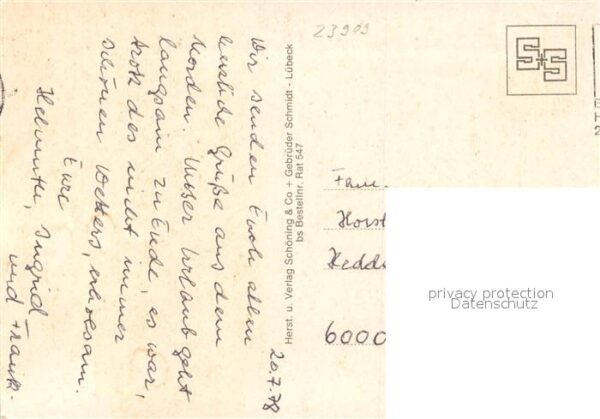 23909
20.7.78
Wir senden Euch allen
herzliche Grüße aus dem
Norden. Unser Urlaub geht
langsam zu Ende, es war,
trotz des nicht immer
schönen Wetters, erholsam.
Eure
Helmuth, Ingrid
und Frank.
Herst. u. Verlag Schöning & Co + Gebrüder Schmidt - Lübeck
bs Bestellnr. Rat 547
Fam.
Horst
Hedd
6000
privacy protection
Datenschutz